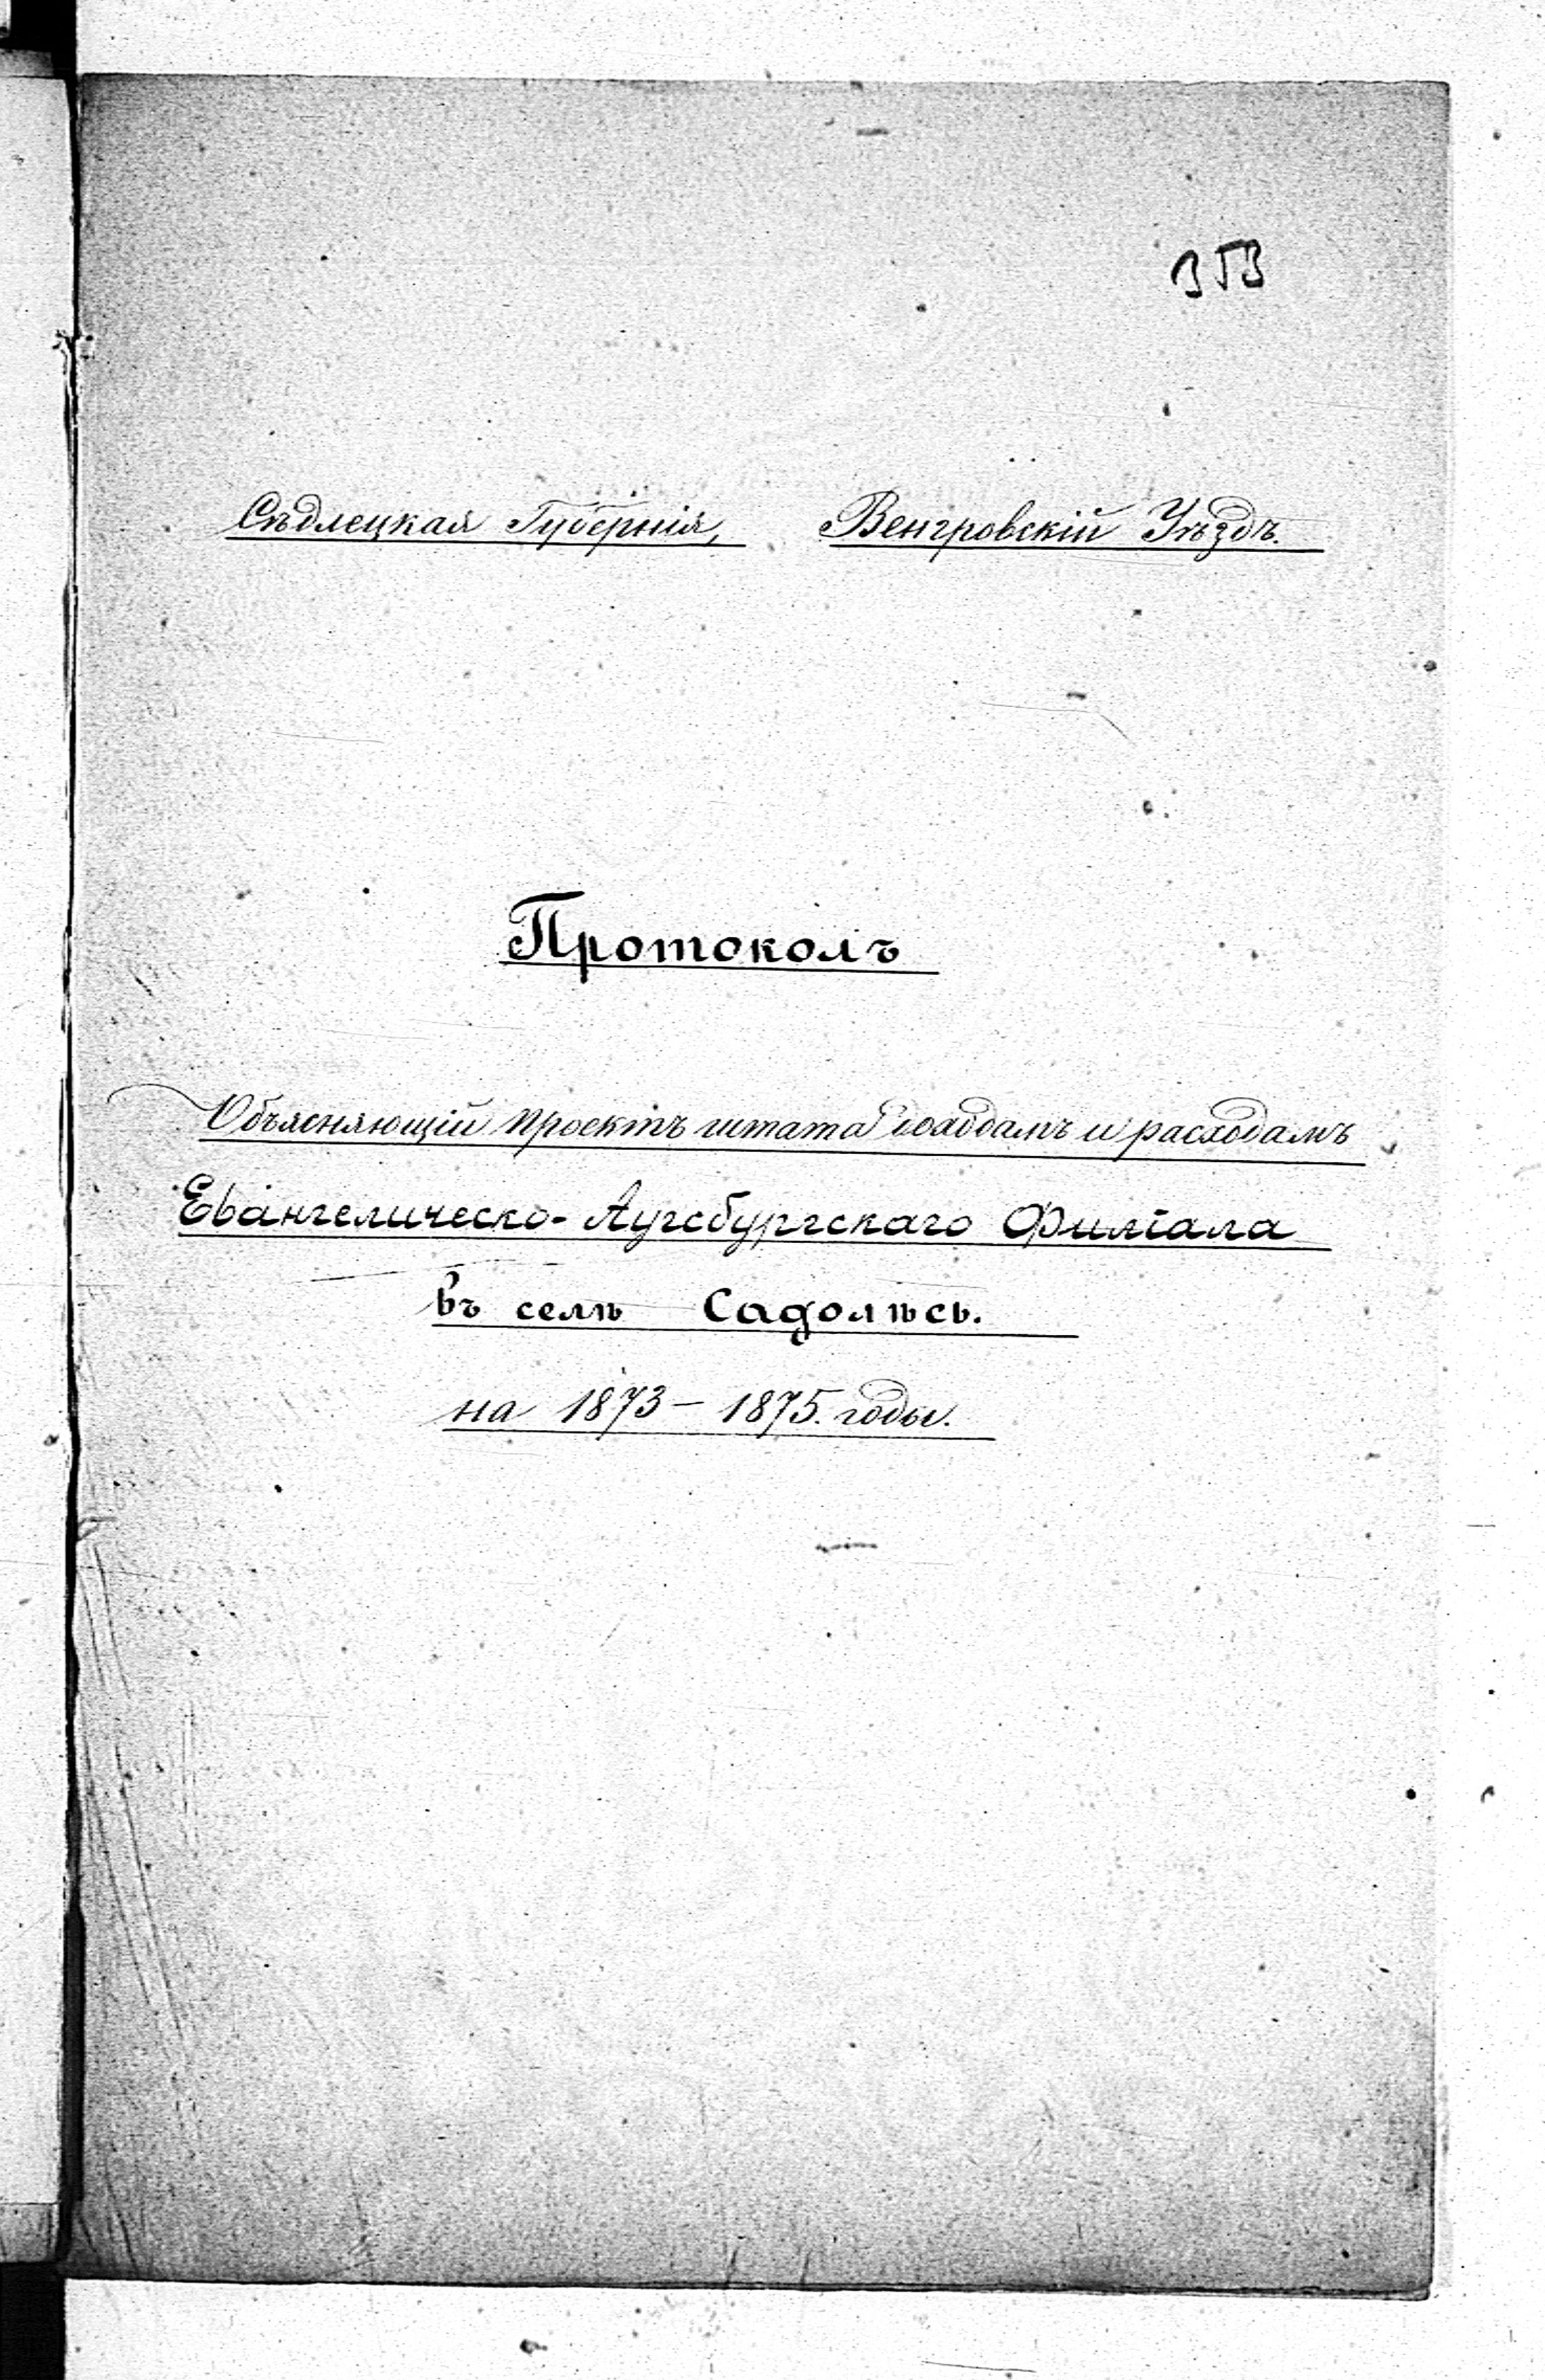 353
Сѣдлецкая Губернія, Венгровскій Уѣздъ.
Протоколъ
Объясняющій проектъ штата доходамъ и расходамъ
Евангелическо-Аугсбургскаго Филіала
въ селѣ Садолѣсь.
на 1873 – 1875. годы.